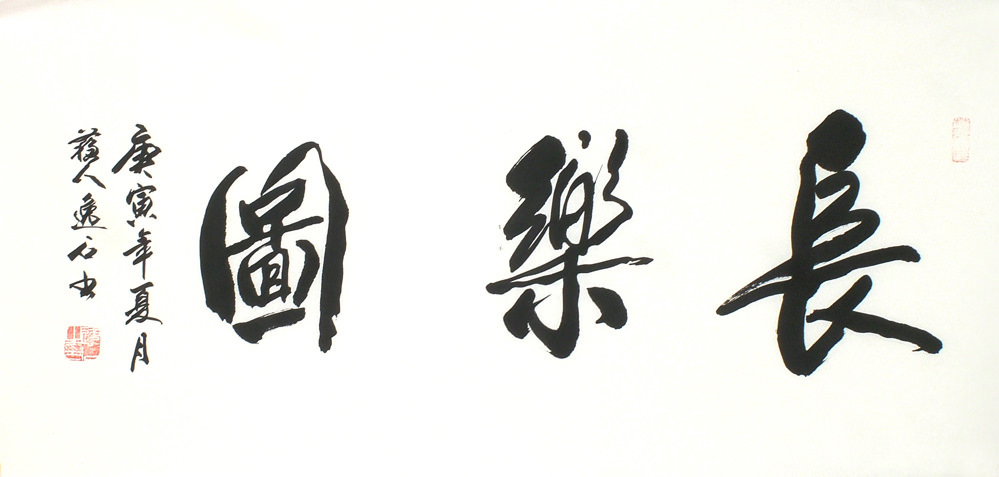 長樂圖
庚寅年夏月
蘇人逸石书